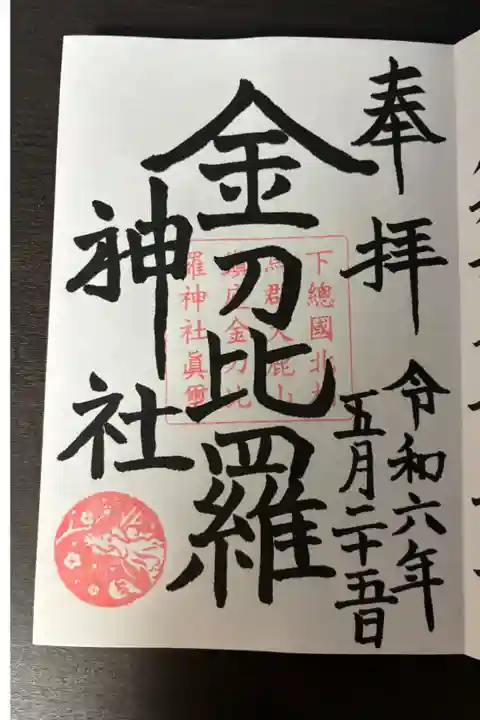 奉拝
令和六年
五月二十五日
金刀比羅
神社
下總國北相
馬郡大鹿山
鎮座金刀比
羅神社眞璽